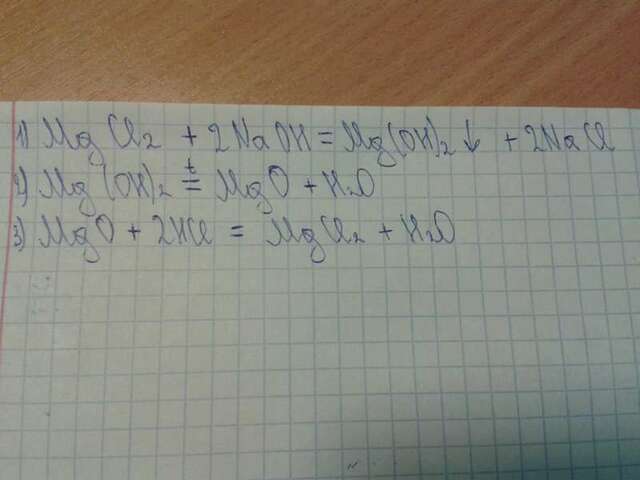 1) MgCl₂ + 2NaOH = Mg(OH)₂↓ + 2NaCl
2) Mg(OH)₂ =ᵗ MgO + H₂O
3) MgO + 2HCl = MgCl₂ + H₂O